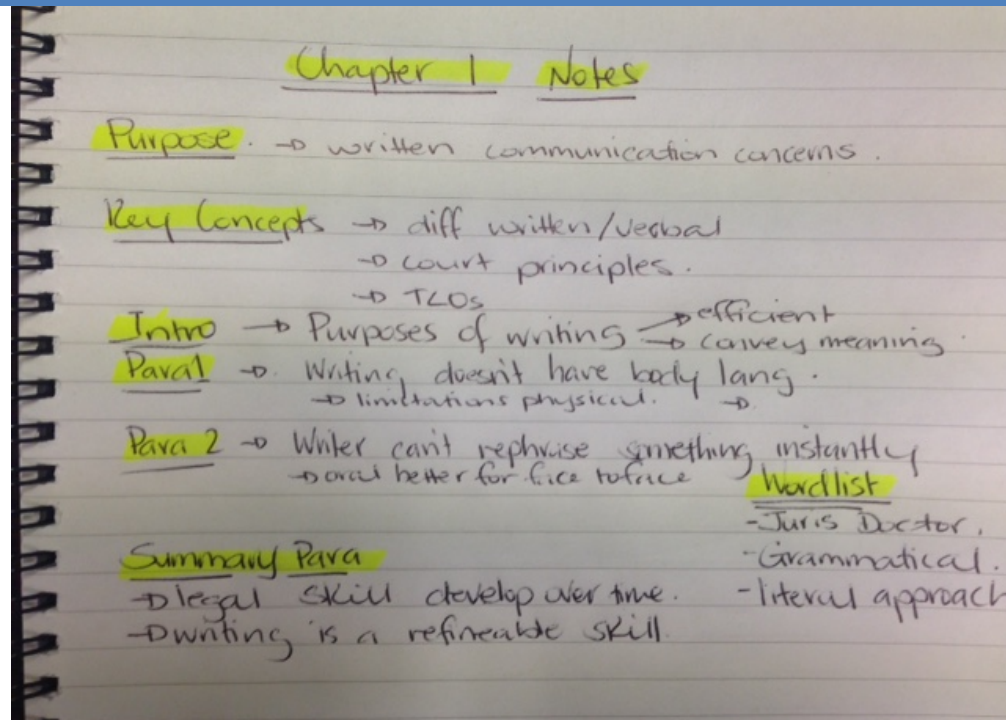 Chapter 1 Notes
Purpose. → written communication concerns.
Key Concepts → diff written/verbal
→ court principles.
→ TLOs
Intro → Purposes of writing → efficient
→ convey meaning.
Para 1 → Writing doesn't have body lang.
→ limitations physical. →
Para 2 → Writer can't rephrase something instantly
→ oral better for face to face
Wordlist
- Juris Doctor.
- Grammatical.
- literal approach
Summary Para
→ legal skill develop over time.
→ writing is a refineable skill.